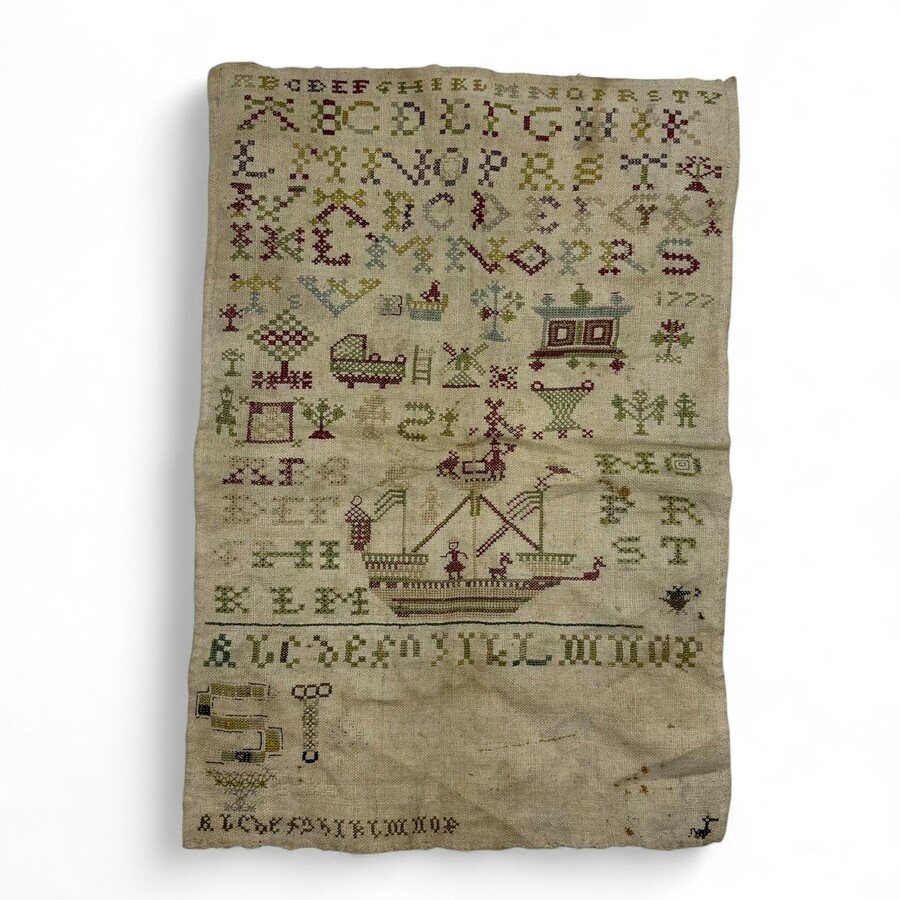 A B C D E F G H I K L M N O P R S T V
A B C D E F G H I K
L M N O P R S T
V A B C D E F G H
I K L M N O P R S
T V
1777
A B
D E F M O
P R
H I S T
K L M
A b c d e f g h i k l m n o p
A b c d e f g h i k l m n o p